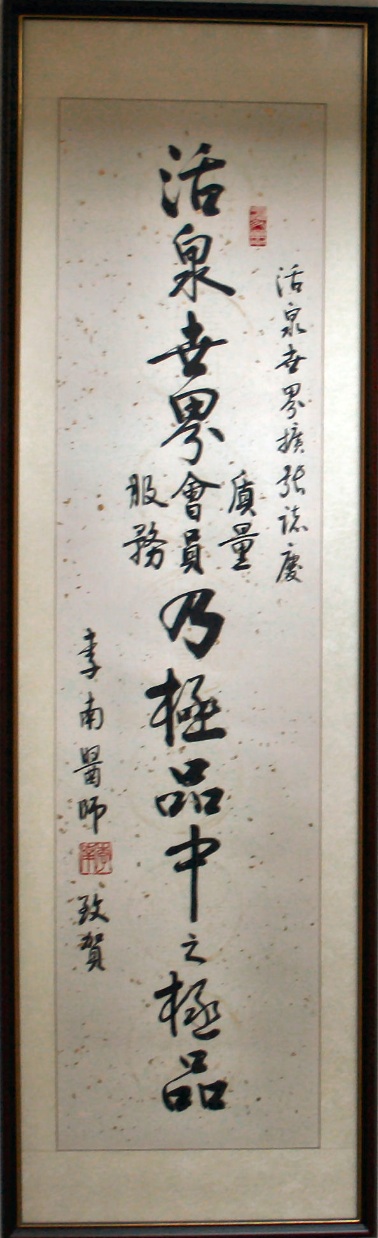 活泉世界擴張誌慶
活泉世界
質量
會員
服務
乃極品中之極品
李南醫師
致賀